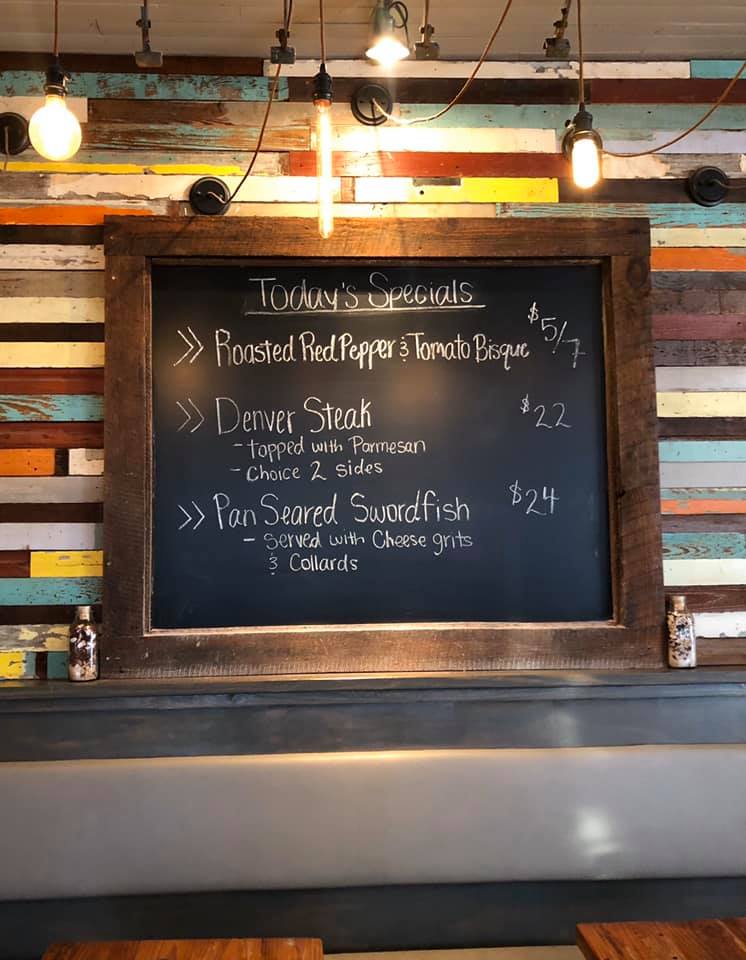 Today's Specials
>> Roasted Red Pepper & Tomato Bisque $5/7
>> Denver Steak $22
- topped with Parmesan
- Choice 2 sides
>> Pan Seared Swordfish $24
- Served with Cheese grits
& Collards